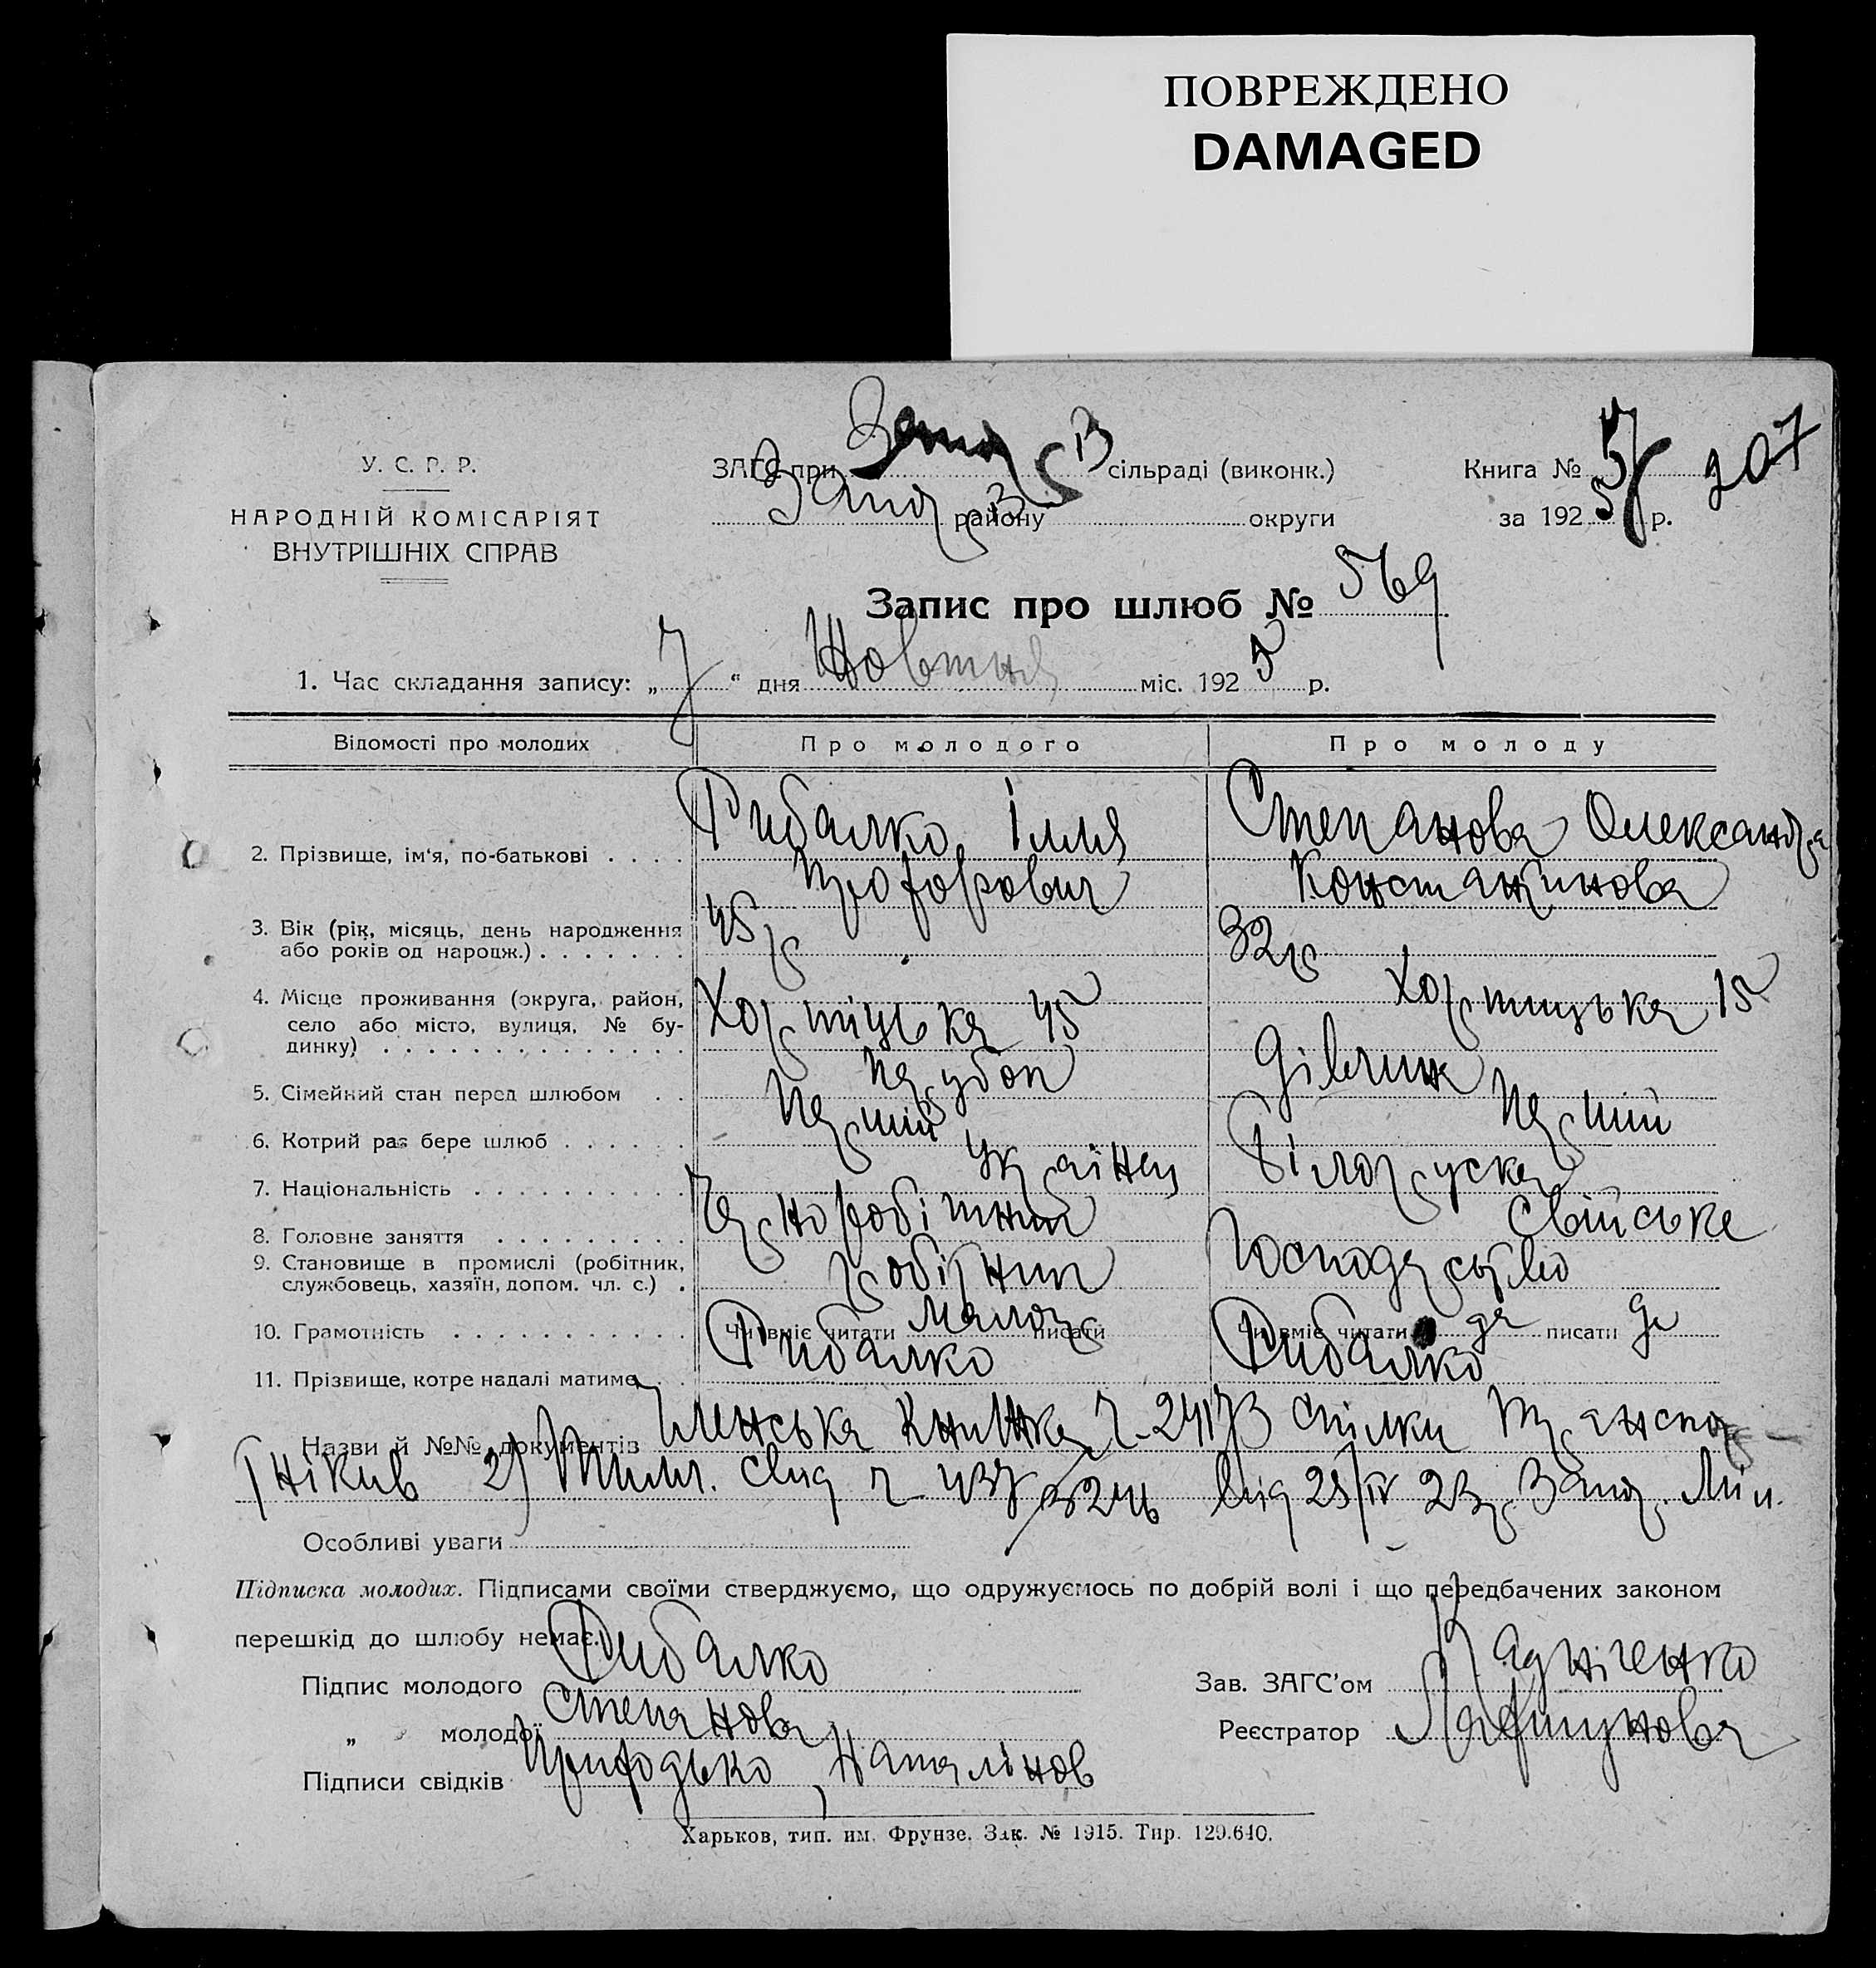 ПОВРЕЖДЕНО
DAMAGED
У. С. Р. Р.
НАРОДНІЙ КОМІСАРІЯТ
ВНУТРІШНІХ СПРАВ
ЗАГС при Запор сільраді (виконк.)
Запор району округи
Книга № 5 207
за 1925 р.
Запис про шлюб № 569
1. Час складання запису: „7“ дня Жовтня міс. 1925 р.
Відомості про молодих Про молодого Про молоду
2. Прізвище, ім'я, по-батькові . . . . Рибалко Ілля Степанова Олександра
Константинова
3. Вік (рік, місяць, день народження або років од народж.) . . . . . . . 45 р 32 р
4. Місце проживання (округа, район, село або місто, вулиця, № будинку) . . . . . . . . . . . . . . Хортіцька 45 Хортицька 15
5. Сімейний стан перед шлюбом . . парубок дівчина
6. Котрий раз бере шлюб . . . . . . перший перший
7. Національність . . . . . . . . . . Українец Білоруска
8. Головне заняття . . . . . . . . . Чорноробітник Свійське
9. Становище в промислі (робітник, службовець, хазяїн, допом. чл. с.) . робітник господарство
10. Грамотність . . . . . . . . . . . Чи вміє читати малог писати Чи вміє читати да писати да
11. Прізвище, котре надалі матиме . . Рибалко Рибалко
Назви й №№ документів Членська Книжка Ч. 24173 спілки Транспор-
тніків 2) свид ч 437 від 25/IV 23 р. Запор. Міл.
Особливі уваги
Підписка молодих. Підписами своїми стверджуємо, що одружуємось по добрій волі і що передбачених законом
перешкід до шлюбу немає.
Підпис молодого Рибалко
„ молодої Степанова
Підписи свідків Приходько,
Зав. ЗАГС'ом
Реєстратор
Харьков, тип. им. Фрунзе. Зак. № 1915. Тир. 129.640.